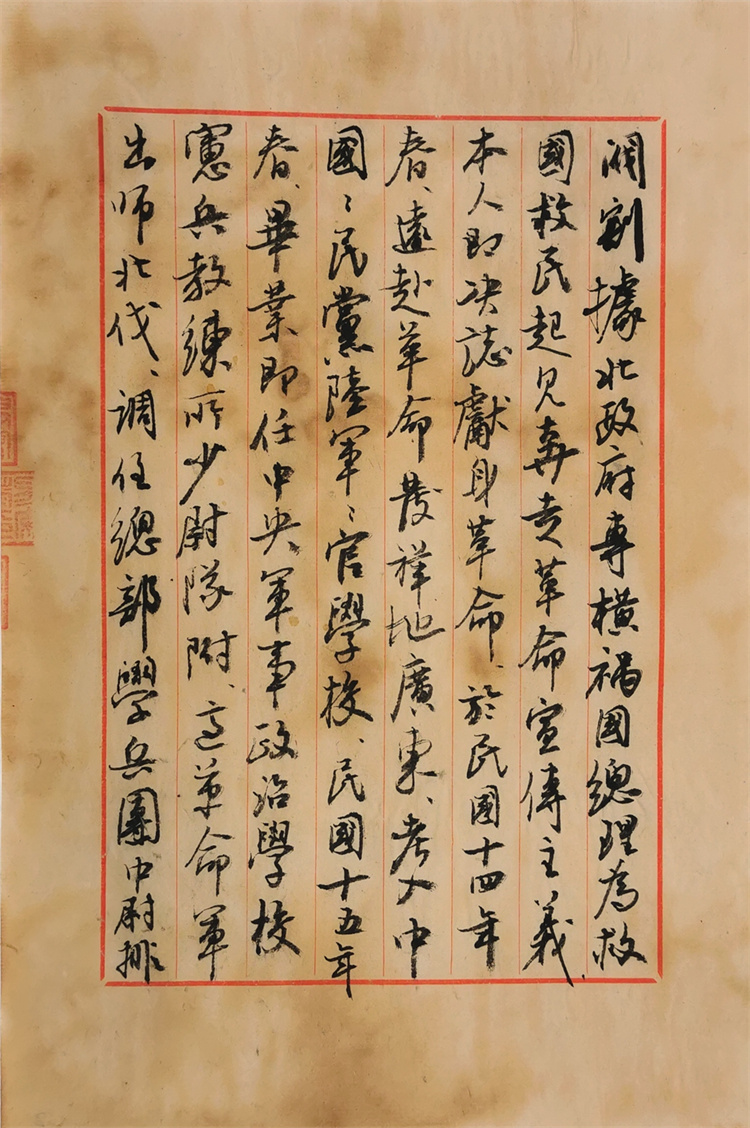 閥割據北政府專橫禍国總理為救
國救民起見奔走革命宣傳主義
本人即决誌獻身革命、於民國十四年
春、遠赴革命發祥地廣東、考入中
國〻民黨陸軍〻官學校、民國十五年
春、畢業即任中央軍事政治學校
憲兵教練所少尉隊附、適革命軍
出师北伐、調任總部學兵團中尉排